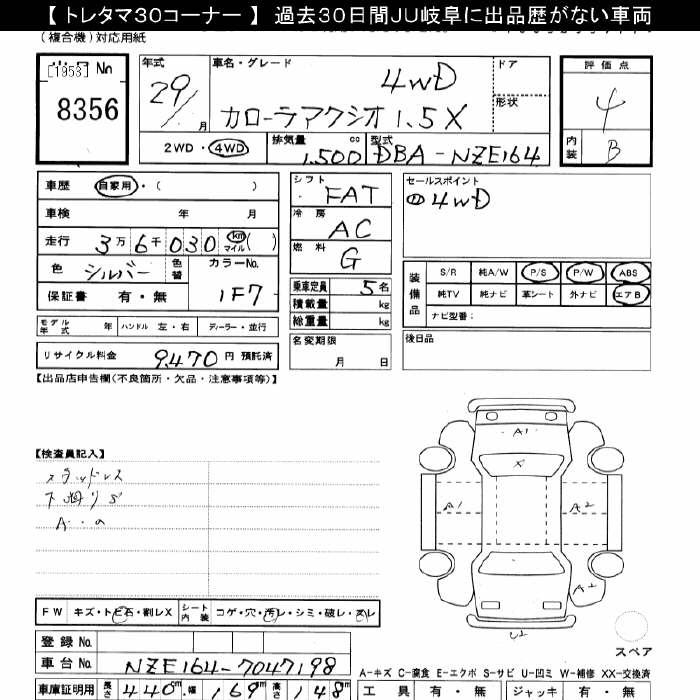 【 トレタマ30コーナー 】 過去30日間JU岐阜に出品歴がない車両
(複合機)対応用紙
[1953] No
8356
年式
29/
月
車名・グレード
4WD
カローラアクシオ 1.5X
ドア
形状
評価点
4
内装
B
2WD・4WD
排気量
1,500
cc
型式
DBA-NZE164
車歴 自家用・( )
車検 年 月
走行 3万6千030 km マイル( )
色 シルバー 色替 カラーNo.
保証書 有・無 1F7
シフト FAT
冷房 AC
燃料 G
乗車定員 5名
積載量 kg
総重量 kg
名変期限
月 日
セールスポイント
4WD
装備品
S/R 純A/W P/S P/W ABS
純TV 純ナビ 革シート 外ナビ エアB
ナビ型番:
後日品
モデル年式 年 ハンドル 左・右 ディーラー・並行
リサイクル料金 9,470 円 預託済
【出品店申告欄(不良箇所・欠品・注意事項等)】
【検査員記入】
スタッドレス
A1
X
A1
A2
A2
U2
FW キズ・トビ石・割レX シート内装 コゲ・穴・汚レ・シミ・破レ・スレ
スペア
登録 No.
車台 No. NZE164-7047198
A-キズ C-腐食 E-エクボ S-サビ U-凹ミ W-補修 XX-交換済
車庫証明用 長さ 440cm 幅 169cm 高さ 148cm
工具 有・無 ジャッキ 有・無